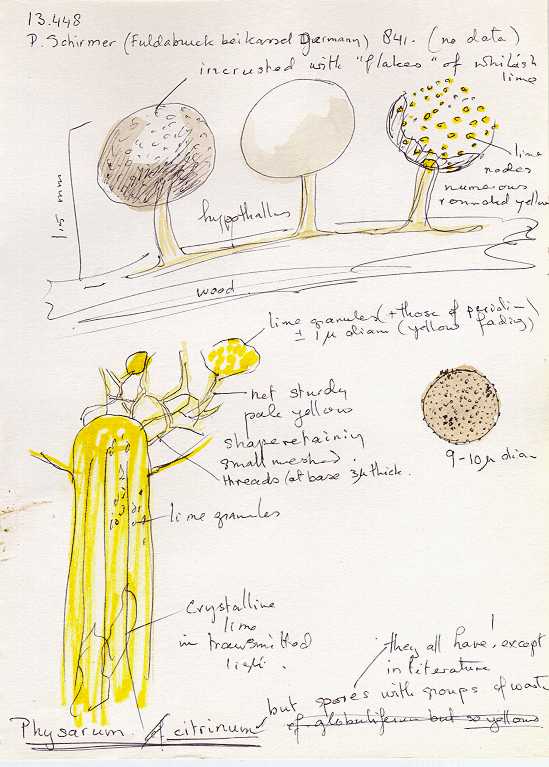 13.448
P. Schirmer (Fuldabruck bei Kassel Germany) 841. (no data)
incrusted with "flakes" of whitish
lime
lime
nodes
numerous
rounded yellow
1.5 mm
hypothallus
wood
lime granules (+ those of peridium)
± 1 µ diam (yellow fading)
net sturdy
pale yellow
shape retaining
small meshed.
threads (at base 3µ thick.
9-10 µ diam
lime granules
crystalline
lime
in transmitted
light.
they all have, except
in literature
!
but spores with groups of warts
of globuliferum but so yellow
Physarum cf citrinum